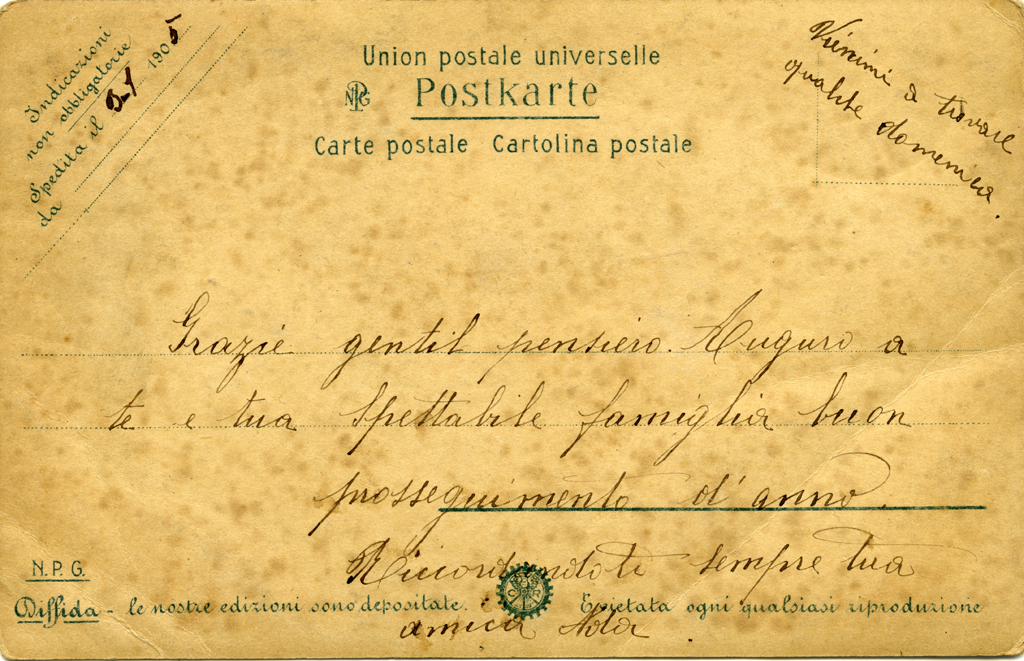 Indicazioni
non obbligatorie
Spedita il 9-1 1905
da
Union postale universelle
NPG Postkarte
Carte postale Cartolina postale
Vienimi a trovare
qualche domenica.
Grazie gentil pensiero. Auguro a
te e tua spettabile famiglia buon
prosseguimento d'anno.
Riccordandoti sempre tua
amica
N.P.G.
Diffida - le nostre edizioni sono depositate. È vietata ogni qualsiasi riproduzione